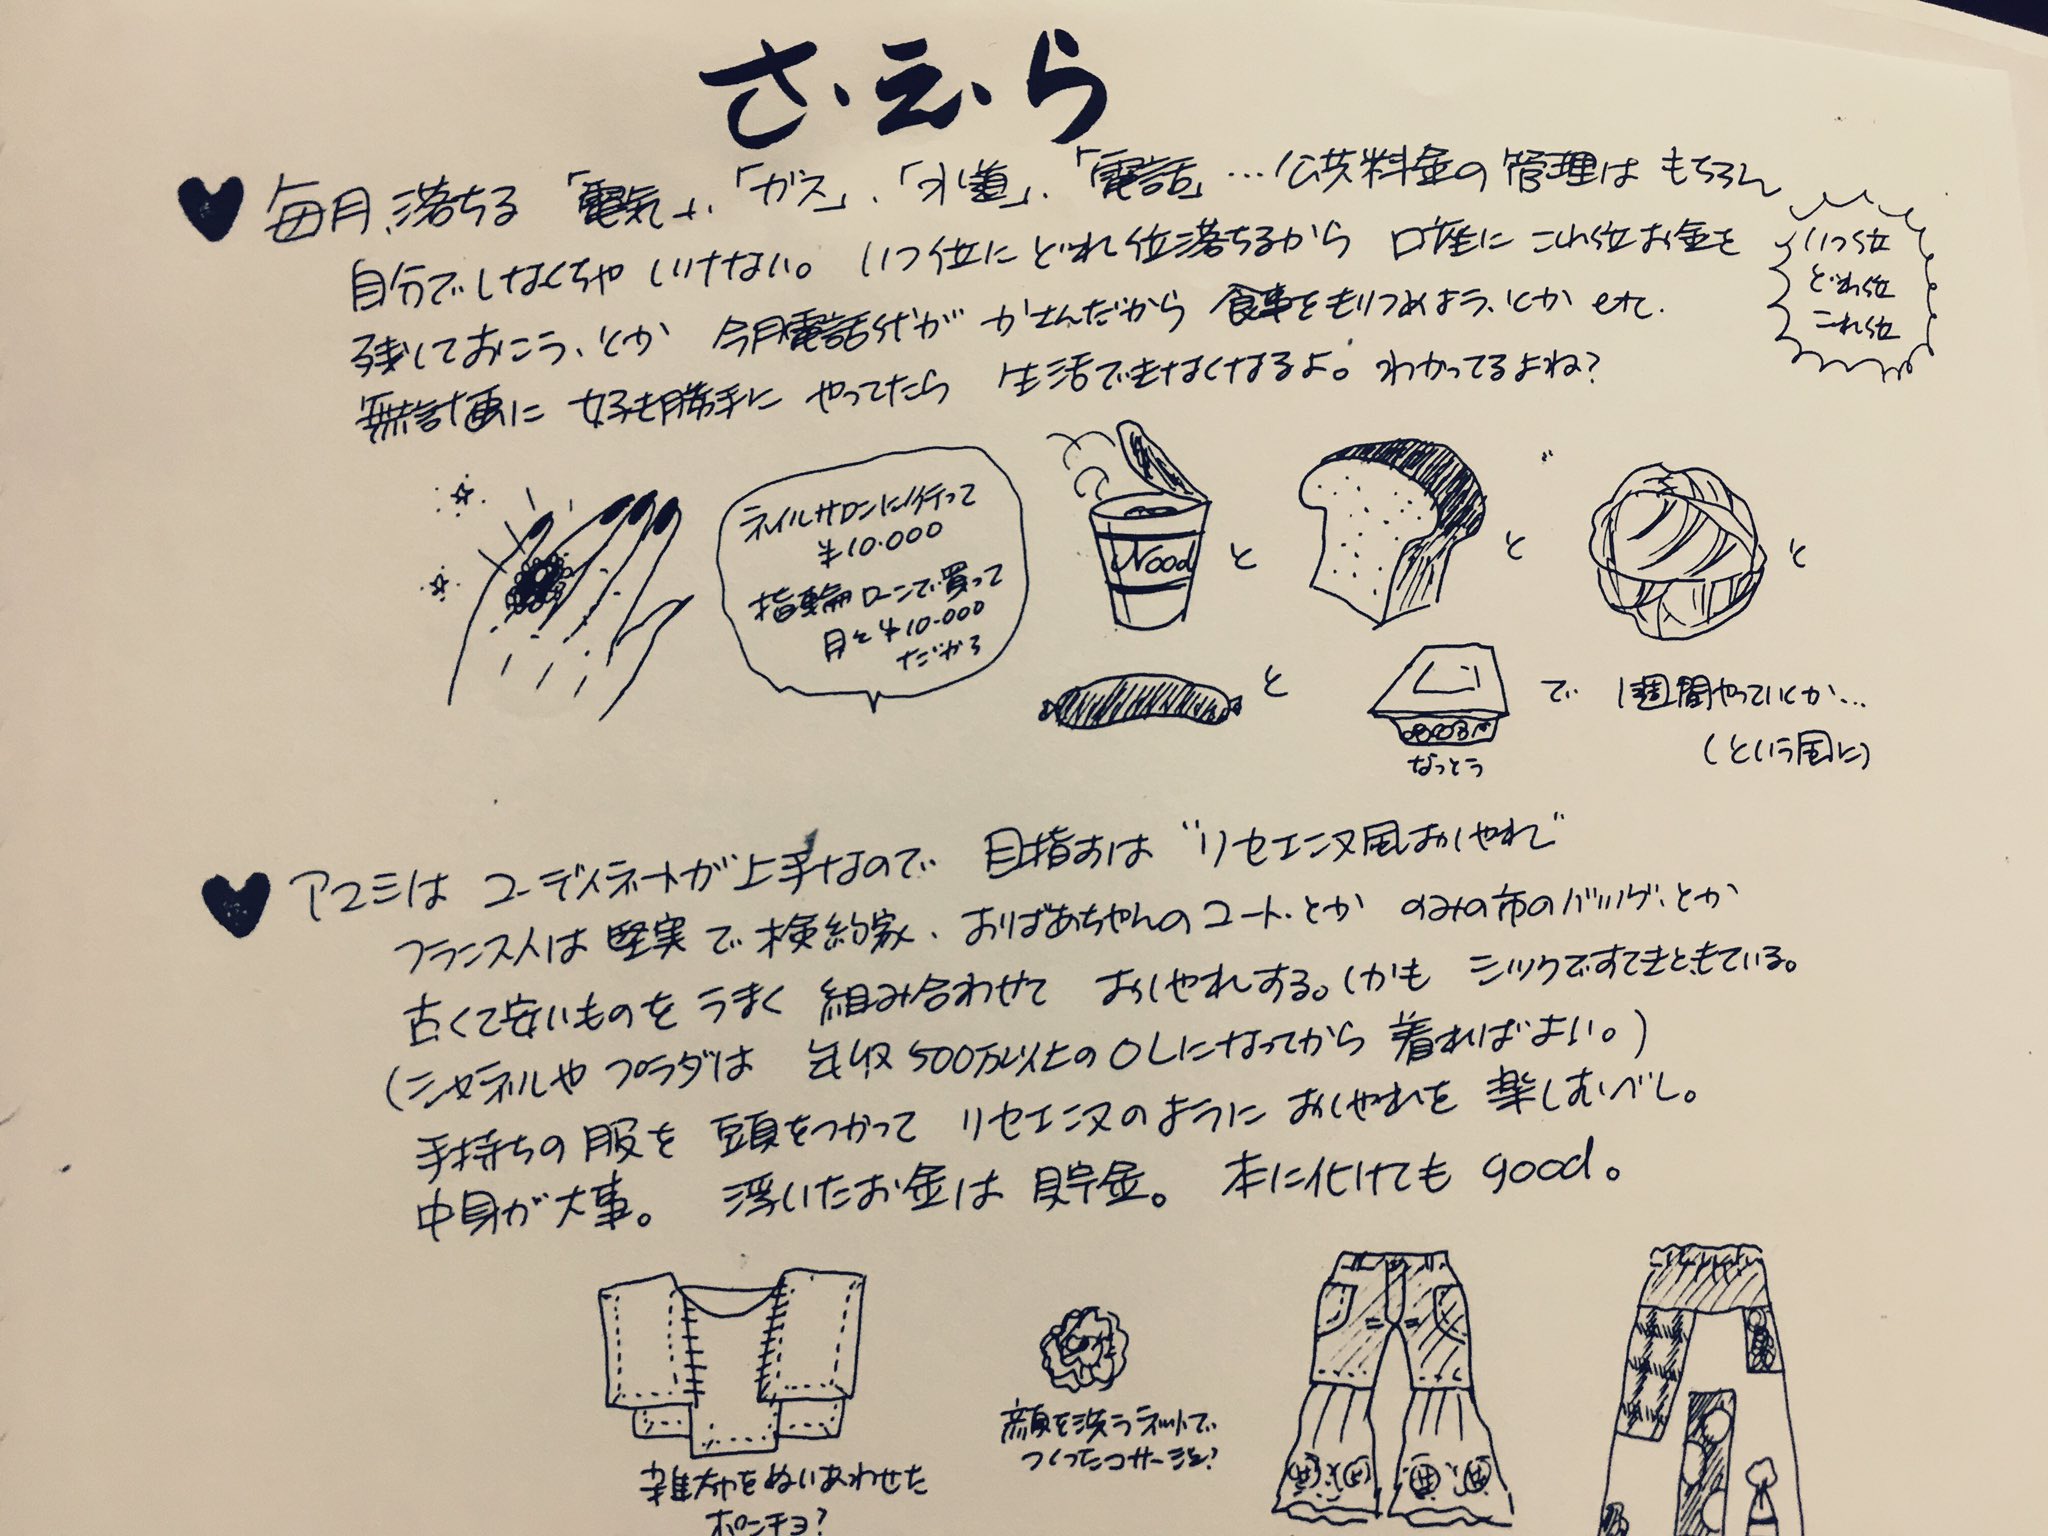 さ・え・ら
毎月、落ちる「電気」、「ガス」、「水道」、「電話」…公共料金の管理は もちろん
自分でしなくちゃ いけない。いつ位に どれ位落ちるから 口座に これ位お金を
残しておこう、とか 今月電話代が かさんだから 食事をもりつめよう、とか etc.
無計画に 好き勝手に やってたら 生活できなくなるよ。わかってるよね?
いつ位
どれ位
これ位
ネイルサロンに行って
¥10.000
指輪ローンで買って
月々¥10.000
だから
Nood
と
と
と
と
で 1週間やっていくか…
なっとう
(という風に)
アユミは コーディネートが上手なので 目指すは "リセエンヌ風おしゃれ"
フランス人は 堅実で 検約家、おばあちゃんのコート・とか のみの市のバッグ、とか
古くて安いものを うまく 組み合わせて おしゃれする。しかも シックですてきときている。
(シャネルや プラダは 年収500万以上のOLになってから 着ればよい。)
手持ちの 服を 頭をつかって リセエンヌのように おしゃれを 楽しむべし。
中身が大事。 浮いたお金は 貯金。 本に化けても good。
雑布をぬいあわせた
ポンチョ?
顔を洗うネットで
つくったコサージュ?